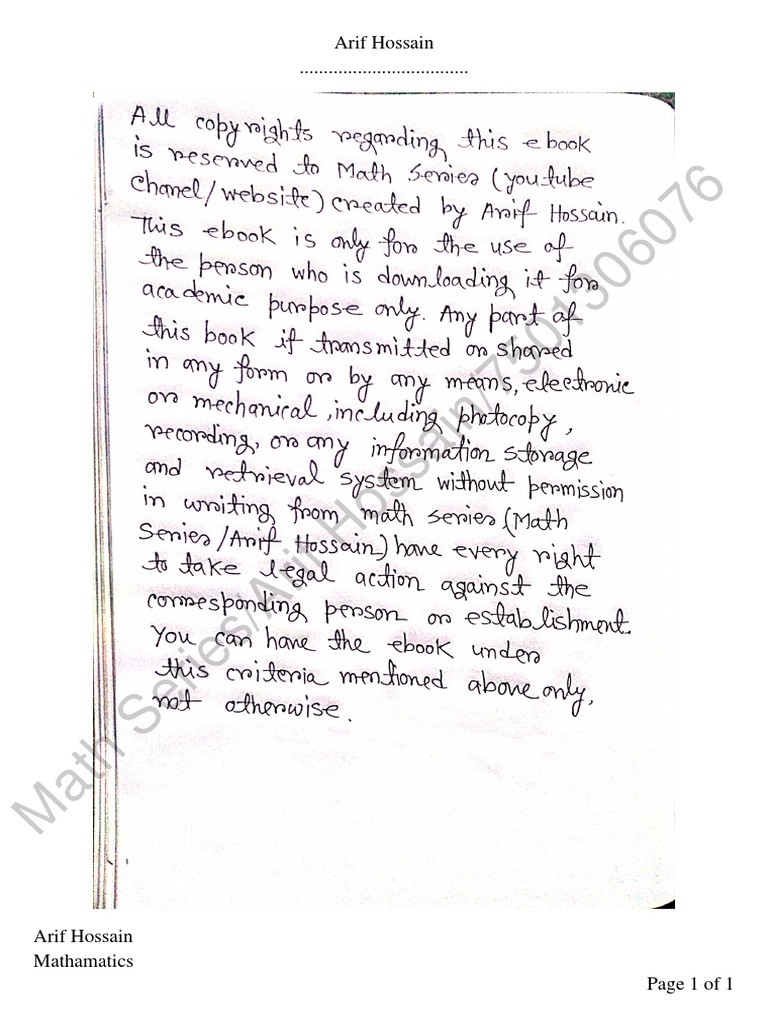 Arif Hossain
..................................
All copyrights regarding this ebook
is reserved to Math Series (youtube
chanel/website) created by Arif Hossain.
This ebook is only for the use of
the person who is downloading it for
academic purpose only. Any part of
this book if transmitted or shared
in any form or by any means, electronic
or mechanical, including photocopy,
recording, or any information storage
and retrieval system without permission
in writing from math series (Math
Series/Arif Hossain) have every right
to take legal action against the
corresponding person or establishment.
You can have the ebook under
this criteria mentioned above only,
not otherwise.
Math Series/Arif Hossain/7501306076
Arif Hossain
Mathamatics
Page 1 of 1